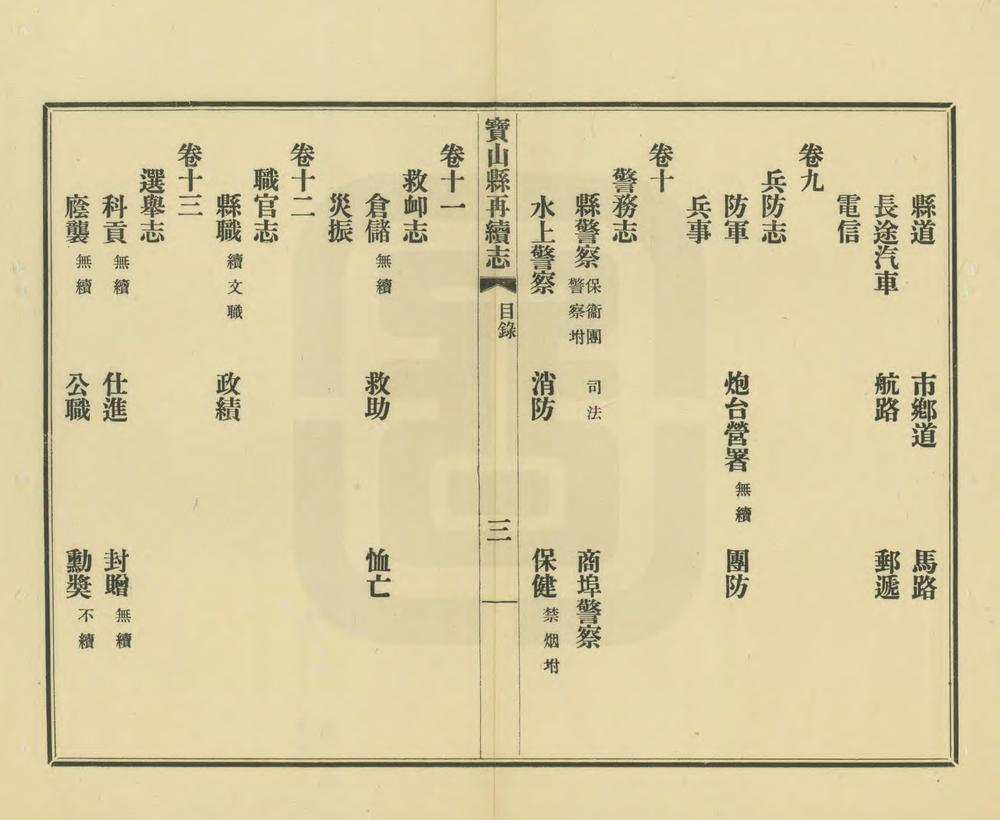 縣道　市鄉道　馬路
長途汽車　航路　郵遞
電信
卷九
兵防志
防軍　炮台營署無續　團防
兵事
卷十
警務志
縣警察保衞團警察坿　司法　商埠警察
水上警察　消防　保健禁烟坿
寶山縣再續志　目錄　三
卷十一
救卹志
倉儲無續　救助　恤亡
災振
卷十二
職官志
縣職續文職　政績
卷十三
選舉志
科貢無續　仕進　封贈無續
廕襲無續　公職　勳獎不續